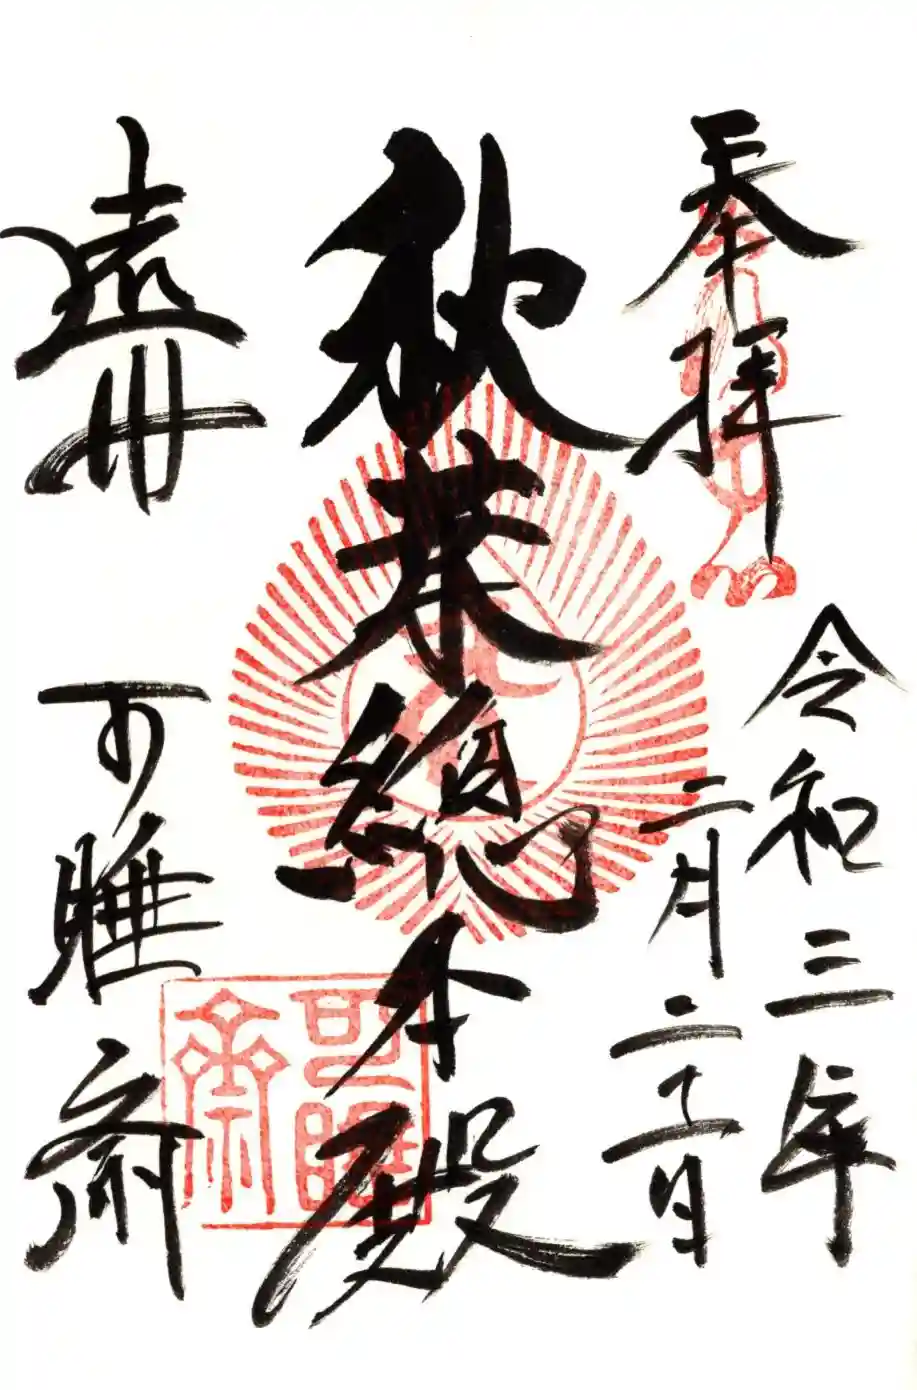 奉拝
令和三年
二月二十一日
秋葉總本殿
遠州
可睡齋
可睡齋